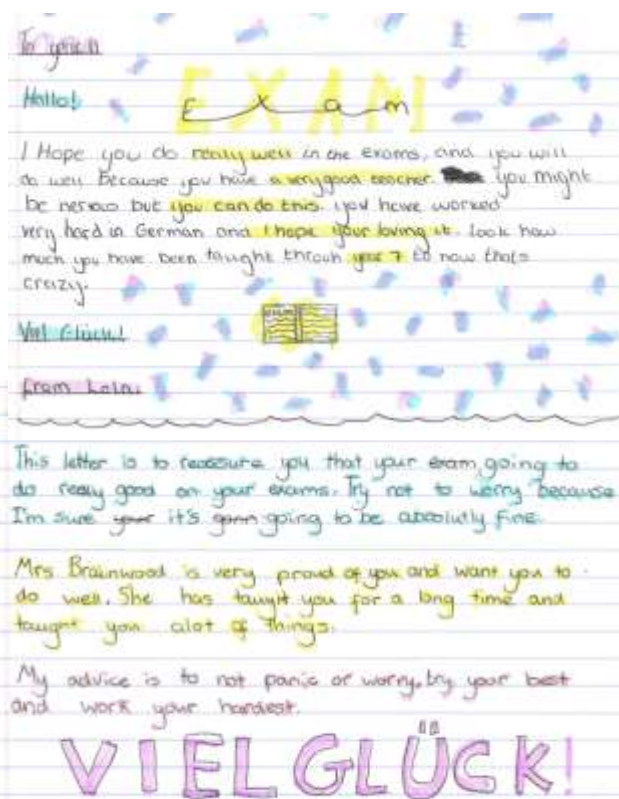 To
Hallo!
EXAM
Exam
I Hope you do really well in the exams, and you will
do well because you have a very good teacher. you might
be nervous but you can do this. you have worked
very hard in German and I hope your loving it. Look how
much you have been taught through year 7 to now thats
crazy.
Viel Glück!
from
This letter is to reassure you that your exam, going to
do realy good on your exams. Try not to worry because
I'm sure your it's gonn going to be absolutly fine.
Mrs Brainwood is very proud of you and want you to
do well. She has taught you for a long time and
taught you alot of things.
My advice is to not panic or worry, try your best
and work your hardest.
VIEL GLÜCK!